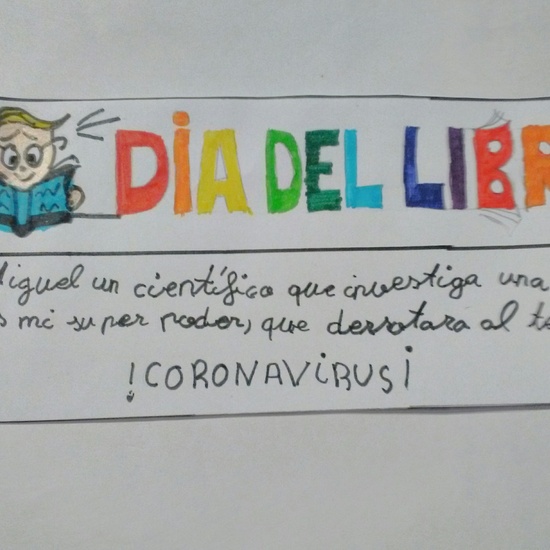 DÍA DEL LIBR
Miguel un científico que investiga una
mi super poder, que derrotara al te
!CORONAViRUS¡